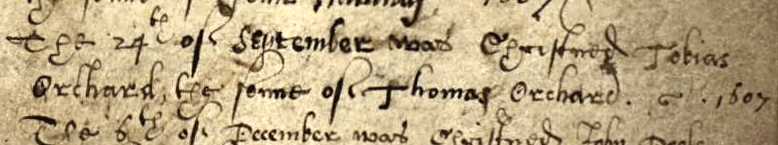 the sonne of
The 24th of September was Christned Tobias
Orchard, the sonne of Thomas Orchard. 1607
The 6th of December was Christned John